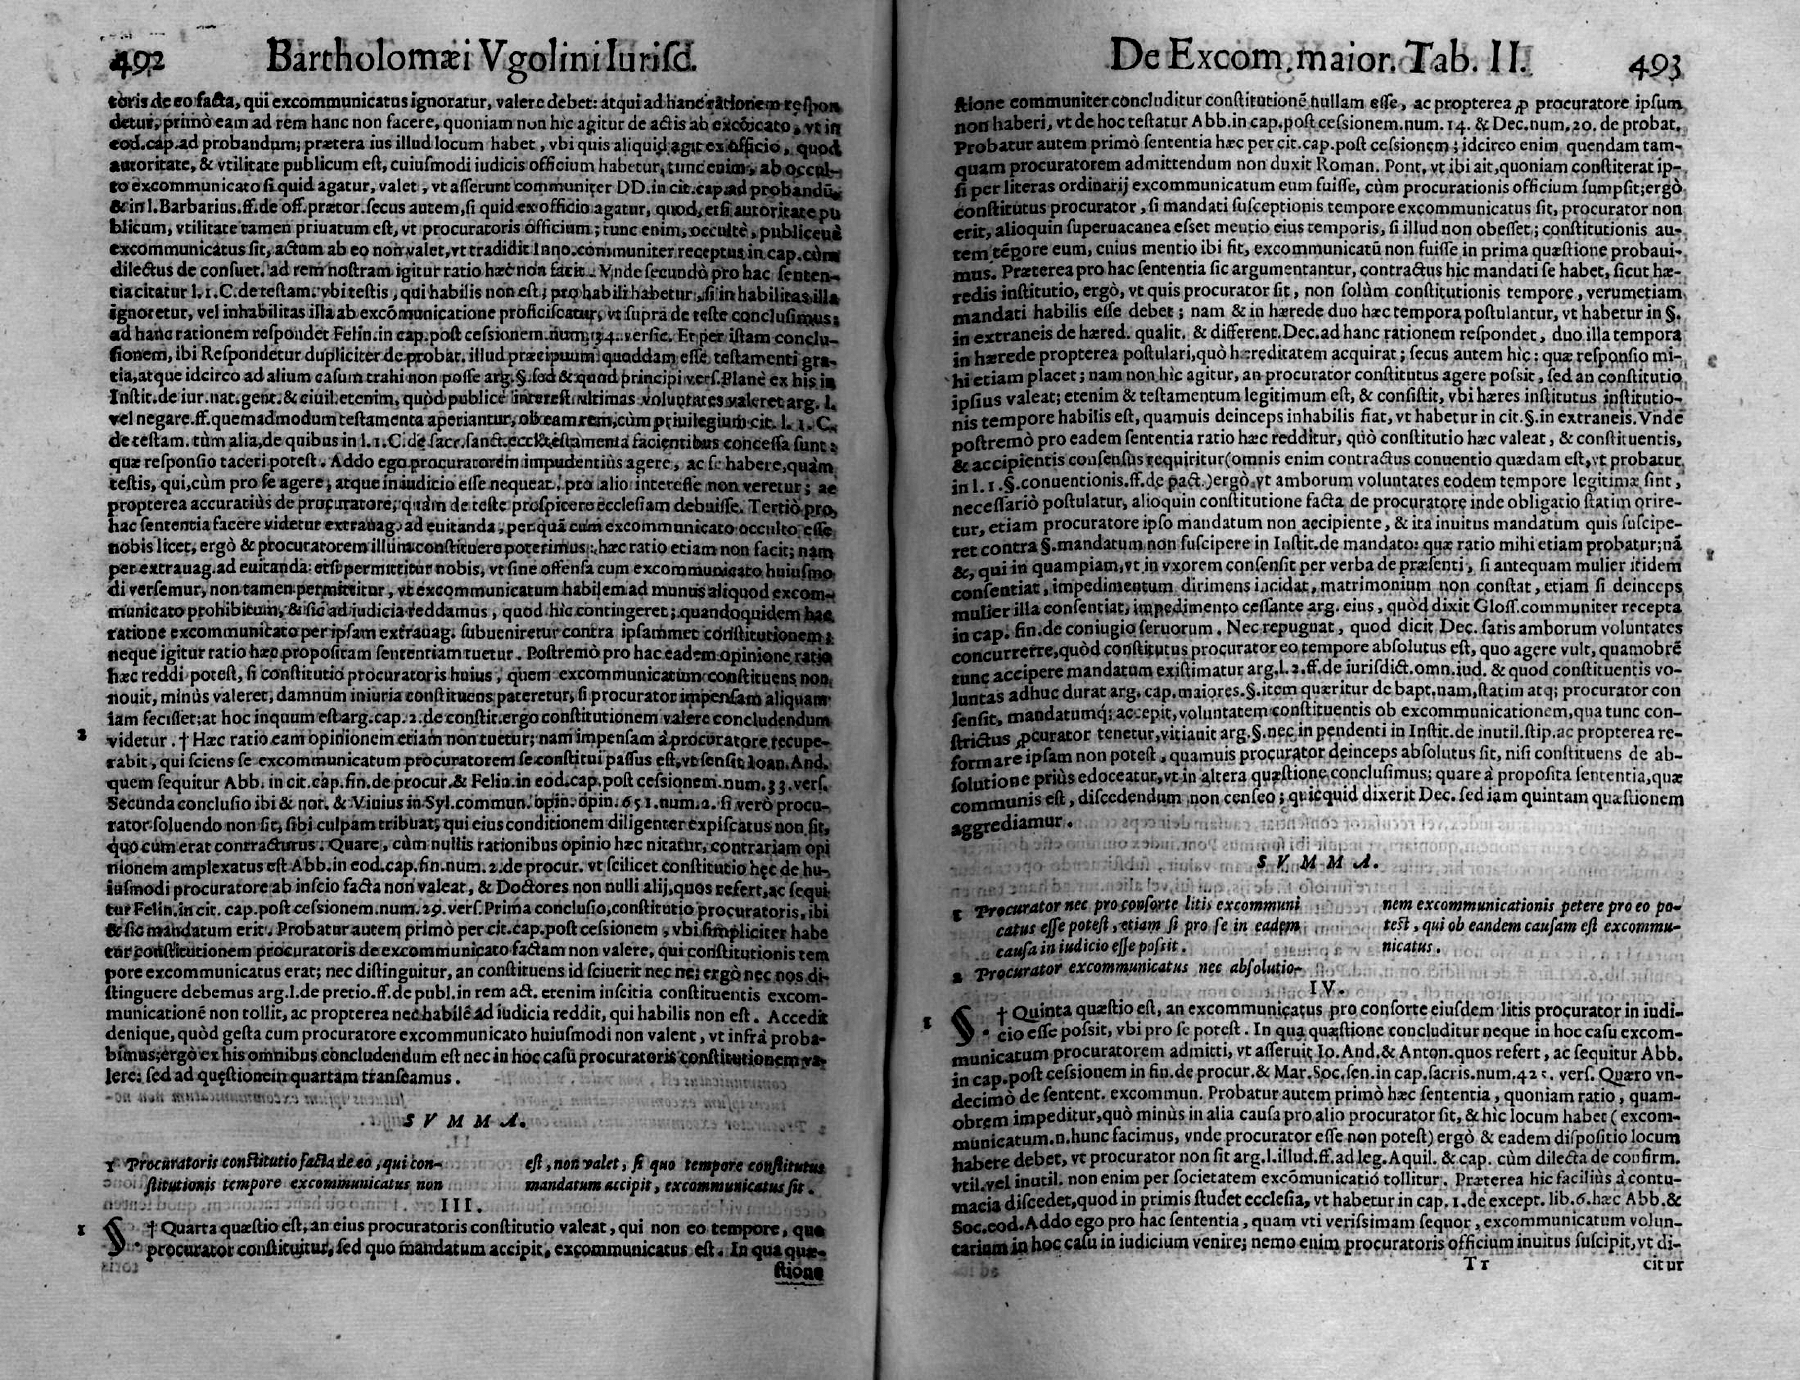 492 Bartholomæi Vgolini Iurisd.
toris de eo facta, qui excommunicatus ignoratur, valere debet: atqui ad hanc rationem respon
detur, primò eam ad rem hanc non facere, quoniam non hic agitur de actis ab excõicato, vt in
eod. cap. ad probandum; prætera ius illud locum habet, vbi quis aliquid agit ex officio, quod
autoritate, & vtilitate publicum est, cuiusmodi iudicis officium habetur, tunc enim, ab occul-
to excommunicato si quid agatur, valet, vt asserunt communiter DD. in cit. cap. ad probandũ,
& in l. Barbarius. ff. de off. prætor. secus autem, si quid ex officio agatur, quod, etsi autoritate pu
blicum, vtilitate tamen priuatum est, vt procuratoris officium; tunc enim, occultè, publiceuè
excommunicatus sit, actum ab eo non valet, vt tradidit Inno. communiter receptus in cap. cùm
dilectus de consuet. ad rem nostram igitur ratio hæc non facit. Vnde secundò pro hac senten-
tia citatur l. 1. C. de testam. vbi testis, qui habilis non est, pro habili habetur, si inhabilitas illa
ignoretur, vel inhabilitas illa ab excõmunicatione proficiscatur, vt suprà de teste conclusimus:
ad hanc rationem respondet Felin. in cap. post cessionem. num. 34. versic. Et per istam conclu-
sionem, ibi Respondetur dupliciter de probat. illud præcipuum quoddam esse testamenti gra-
tia, atque idcirco ad alium casum trahi non posse arg. §. sed & quod principi vers. Planè ex his in
Instit. de iur. nat. gent. & ciuil. etenim, quòd publicè interest vltimas voluntates valeret arg. l.
vel negare. ff. quemadmodum testamenta aperiantur, ob eam rem, cùm priuilegium cit. l. 1. C.
de testam. tùm alia, de quibus in l. 1. C. de sacr. sanct. eccl. testamenta facientibus concessa sunt:
quæ responsio taceri potest. Addo ego procuratorem impudentiùs agere, ac se habere, quàm
testis, qui, cùm pro se agere, atque in iudicio esse nequeat, pro alio interesse non veretur; ac
propterea accuratiùs de procuratore, quàm de teste prospicere ecclesiam debuisse. Tertiò pro
hac sententia facere videtur extrauag. ad euitanda, per quã cum excommunicato occulto esse
nobis licet, ergò & procuratorem illum constituere poterimus: hæc ratio etiam non facit; nam
per extrauag. ad euitanda: etsi permittitur nobis, vt sine offensa cum excommunicato huiusmo
di versemur, non tamen permittitur, vt excommunicatum habilem ad munus aliquod excom-
municato prohibitum, & sic ad iudicia reddamus, quod hic contingeret; quandoquidem hac
ratione excommunicato per ipsam extrauag. subueniretur contra ipsammet constitutionem:
neque igitur ratio hæc propositam sententiam tuetur. Postremò pro hac eadem opinione ratio
hæc reddi potest, si constitutio procuratoris huius, quem excommunicatum constituens non
nouit, minùs valeret, damnum iniuria constituens pateretur, si procurator impensam aliquam
iam fecisset: at hoc inquum est arg. cap. 2. de constit. ergo constitutionem valere concludendum
2 videtur. † Hæc ratio eam opinionem etiam non tuetur; nam impensam à procuratore recupe-
rabit, qui sciens se excommunicatum procuratorem se constitui passus est, vt sensit Ioan. And.
quem sequitur Abb. in cit. cap. fin. de procur. & Felin. in eod. cap. post cessionem. num. 33. vers.
Secunda conclusio ibi & not. & Viuius in Syl. commun. opin. opin. 651. num. 2. si verò procu-
rator soluendo non sit, sibi culpam tribuat; qui eius conditionem diligenter expiscatus non sit,
quo cum erat contracturus. Quare, cùm nullis rationibus opinio hæc nitatur, contrariam opi
nionem amplexatus est Abb. in eod. cap. fin. num. 2. de procur. vt scilicet constitutio hęc de hu-
iusmodi procuratore ab inscio facta non valeat, & Doctores non nulli alij, quos refert, ac sequi
tur Felin. in cit. cap. post cessionem. num. 29. vers. Prima conclusio, constitutio procuratoris, ibi
& sic mandatum erit. Probatur autem primò per cit. cap. post cessionem, vbi simpliciter habe
tur constitutionem procuratoris de excommunicato factam non valere, qui constitutionis tem
pore excommunicatus erat; nec distinguitur, an constituens id sciuerit nec ne; ergò nec nos di-
stinguere debemus arg. l. de pretio. ff. de publ. in rem act. etenim inscitia constituentis excom-
municationẽ non tollit, ac propterea nec habilẽ ad iudicia reddit, qui habilis non est. Accedit
denique, quòd gesta cum procuratore excommunicato huiusmodi non valent, vt infrà proba-
bimus; ergò ex his omnibus concludendum est nec in hoc casu procuratoris constitutionem va-
lere: sed ad quęstionem quartam transeamus.
SVMMA.
1 Procuratoris constitutio facta de eo, qui con-
stitutionis tempore excommunicatus non
est, non valet, si quo tempore constitutus
mandatum accipit, excommunicatus sit.
III.
1 § † Quarta quæstio est, an eius procuratoris constitutio valeat, qui non eo tempore, quo
procurator constituitur, sed quo mandatum accipit, excommunicatus est. In qua quæ-
stione
De Excom. maior. Tab. II. 493
stione communiter concluditur constitutionẽ nullam esse, ac propterea ꝓ procuratore ipsum
non haberi, vt de hoc testatur Abb. in cap. post cessionem. num. 14. & Dec. num. 20. de probat.
Probatur autem primò sententia hæc per cit. cap. post cessionem; idcirco enim quendam tam-
quam procuratorem admittendum non duxit Roman. Pont, vt ibi ait, quoniam constiterat ip-
si per literas ordinarij excommunicatum eum fuisse, cùm procurationis officium sumpsit; ergò
constitutus procurator, si mandati susceptionis tempore excommunicatus sit, procurator non
erit, alioquin superuacanea esset mentio eius temporis, si illud non obesset; constitutionis au-
tem tẽpore eum, cuius mentio ibi fit, excommunicatũ non fuisse in prima quæstione probaui-
mus. Præterea pro hac sententia sic argumentantur, contractus hic mandati se habet, sicut hæ-
redis institutio, ergò, vt quis procurator sit, non solùm constitutionis tempore, verumetiam
mandati habilis esse debet; nam & in hærede duo hæc tempora postulantur, vt habetur in §.
in extraneis de hæred. qualit. & different. Dec. ad hanc rationem respondet, duo illa tempora
in hærede propterea postulari, quò hæreditatem acquirat; secus autem hic: quæ responsio mi-
hi etiam placet; nam non hic agitur, an procurator constitutus agere possit, sed an constitutio
ipsius valeat; etenim & testamentum legitimum est, & consistit, vbi hæres institutus institutio-
nis tempore habilis est, quamuis deinceps inhabilis fiat, vt habetur in cit. §. in extraneis. Vndè
postremò pro eadem sententia ratio hæc redditur, quò constitutio hæc valeat, & constituentis,
& accipientis consensus requiritur (omnis enim contractus conuentio quædam est, vt probatur
in l. 1. §. conuentionis. ff. de pact.) ergò, vt amborum voluntates eodem tempore legitimæ sint,
necessariò postulatur, alioquin constitutione facta de procuratore inde obligatio statim orire-
tur, etiam procuratore ipso mandatum non accipiente, & ita inuitus mandatum quis suscipe-
ret contra §. mandatum non suscipere in Instit. de mandato: quæ ratio mihi etiam probatur; nã
&, qui in quampiam, vt in vxorem consensit per verba de præsenti, si antequam mulier itidem
consentiat, impedimentum dirimens incidat, matrimonium non constat, etiam si deinceps
mulier illa consentiat, impedimento cessante arg. eius, quòd dixit Gloss. communiter recepta
in cap. fin. de coniugio seruorum. Nec repugnat, quod dicit Dec. satis amborum voluntates
concurrerre, quòd constitutus procurator eo tempore absolutus est, quo agere vult, quamobrẽ
tunc accipere mandatum existimatur arg. l. 2. ff. de iurisdict. omn. iud. & quod constituentis vo-
luntas adhuc durat arg. cap. maiores. §. item quæritur de bapt. nam, statim atq; procurator con
sensit, mandatumq́; accepit, voluntatem constituentis ob excommunicationem, qua tunc con-
strictus ꝓcurator tenetur, vitiauit arg. §. nec in pendenti in Instit. de inutil. stip. ac propterea re-
formare ipsam non potest, quamuis procurator deinceps absolutus sit, nisi constituens de ab-
solutione priùs edoceatur, vt in altera quæstione conclusimus; quare à proposita sententia, quæ
communis est, discedendum non censeo; quicquid dixerit Dec. sed iam quintam quæstionem
aggrediamur.
SVMMA.
1 Procurator nec pro consorte litis excommuni
catus esse potest, etiam si pro se in eadem
causa in iudicio esse possit.
2 Procurator excommunicatus nec absolutio-
nem excommunicationis petere pro eo po-
test, qui ob eandem causam est excommu-
nicatus.
IV.
1 § † Quinta quæstio est, an excommunicatus pro consorte eiusdem litis procurator in iudi-
cio esse possit, vbi pro se potest. In qua quæstione concluditur neque in hoc casu excom-
municatum procuratorem admitti, vt asseruit Io. And. & Anton. quos refert, ac sequitur Abb.
in cap. post cessionem in fin. de procur. & Mar. Soc. sen. in cap. sacris. num. 425. vers. Quæro vn-
decimò de sentent. excommun. Probatur autem primò hæc sententia, quoniam ratio, quam-
obrem impeditur, quò minùs in alia causa pro alio procurator sit, & hic locum habet (excom-
municatum. n. hunc facimus, vnde procurator esse non potest) ergò & eadem dispositio locum
habere debet, vt procurator non sit arg. l. illud. ff. ad leg. Aquil. & cap. cùm dilecta de confirm.
vtil. vel inutil. non enim per societatem excõmunicatio tollitur. Præterea hic faciliùs à contu-
macia discedet, quod in primis studet ecclesia, vt habetur in cap. 1. de except. lib. 6. hæc Abb. &
Soc. eod. Addo ego pro hac sententia, quam vti verissimam sequor, excommunicatum volun-
tarium in hoc casu in iudicium venire; nemo enim procuratoris officium inuitus suscipit, vt di-
Tt citur